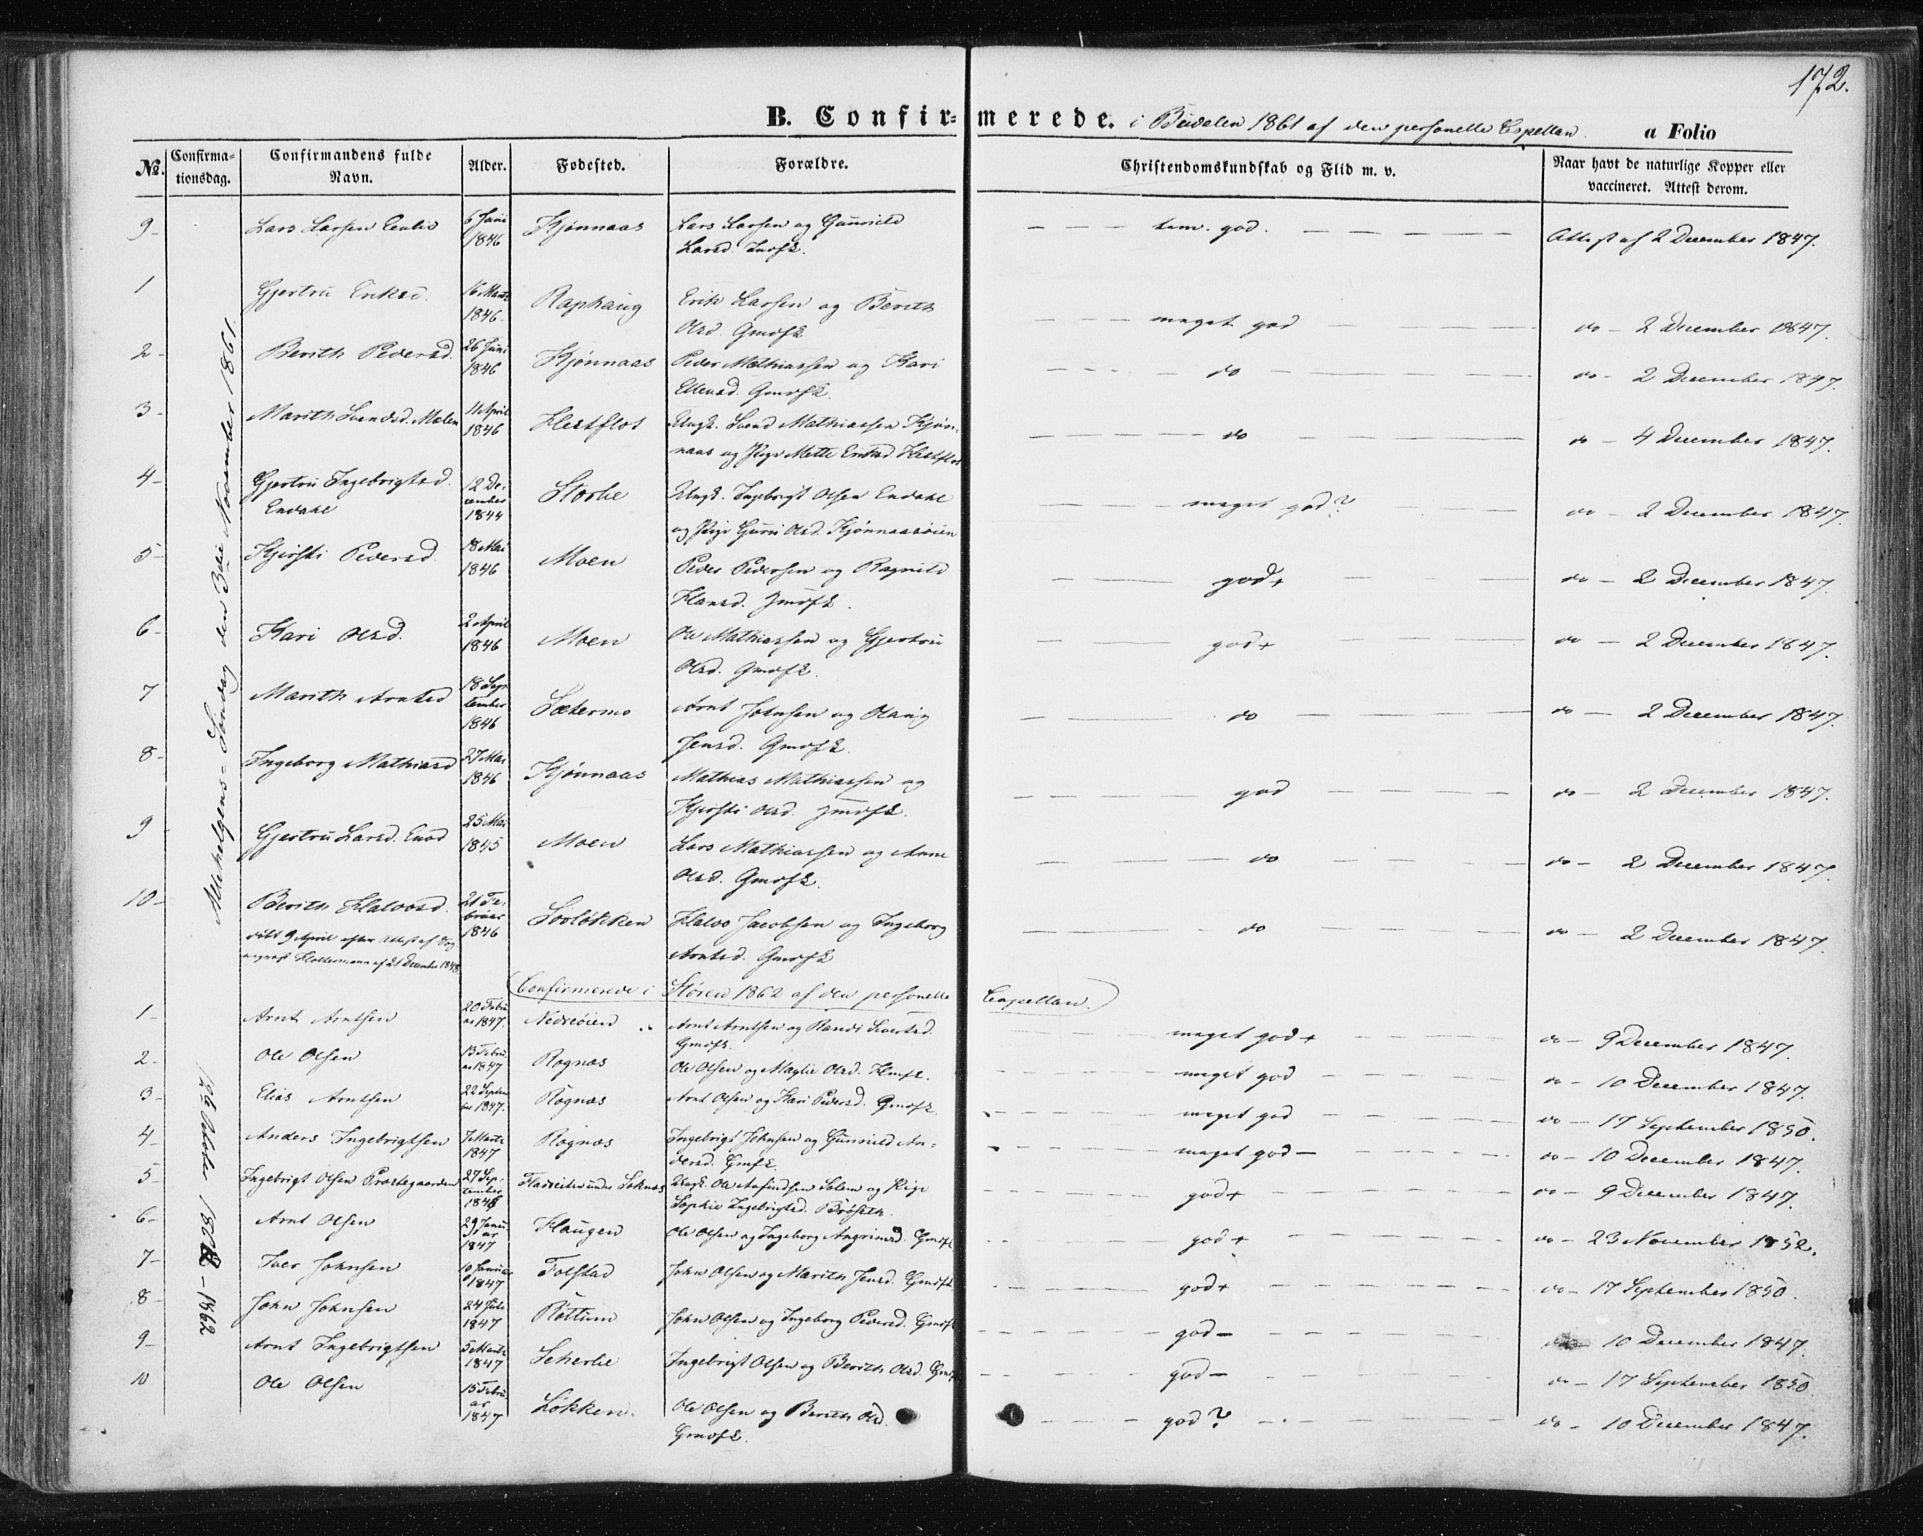 172.
B. Confir=merede. i Budalen 1861 af den personelle Capellan. a Folio
No. Confirma-tionsdag. Confirmandens fulde Navn. Alder. Fødested. Forældre. Christendomskundskab og Flid m. v. Naar havt de naturlige Kopper eller vaccineret. Attest derom.
Allehelgens-Søndag den 3die November 1861.
9- Lars Larsen 6 Juni 1846 Kjønnaas Lars Larsen og Gunnild
Larsd. tem. god. Attest af 2 December 1847.
1 Gjertru Eriksd. 16 Marts 1846 Raphaug Erik Larsen og Berith
Olsd. Gmofk meget god do - 2 December 1847.
2- Berith Pedersd. 26 Juni 1846 Kjønnaas Peder Mathiassen og Kari
Ellensd. Gmofk. do do - 2 December 1847.
3- Marith Svendsd. Molen 11 April 1846 Hestflot Ungk. Svend Mathiassen Kjøn-
naas og Pige Mette Eriksd. Hestflot do do - 4 December 1847.
4- Gjertru Ingebrigtsd. Endahl 12 December 1844 Storlie Ungk. Ingebrigt Olsen Endahl
og Pige Guru Olsd. Kjønnaasøien meget god? do - 2 December 1847.
5- Kjersti Pedersd. 18 Mai 1846 Moen Peder Pedersen og Ragnild
Hansd. Gmofk. god+ do - 2 December 1847.
6- Kari Olsd. 2 April 1846 Moen Ole Mathiassen og Gjertru
Olsd. Gmofk. god+ do - 2 December 1847.
7 Marith Arntsd 18 September 1846 Sætermo Arnt Johnsen og Olaug
Jensd. Gmofk. do do - 2 December 1847.
8- Ingeborg Mathiasd 27 Mai 1846 Kjønnaas Mathias Mathiassen og
Kjersti Olsd. Gmofk. god do - 2 December 1847.
9 Gjertru Larsd. Enod 25 Mai 1845 Moen Lars Mathiassen og Anne
Olsd. Gmofk. do do - 2 December 1847.
10- Berith Halvorsd. 21 Februar 1846 Storløkken Halvor Jacobsen og Ingeborg
Arntsd. Gmofk do do - 2 December 1847.
døbt 9 April efter Attest af
Hattermann af 21 December 1848
Confirmerede i Støren 1862 af den personelle Capellan.
October 1862
1- Arnt Arntsen 20 Februar 1847. Nedreøien Arnt Arntsen og Randi Sivertsd.
Gmofk. meget god+ do - 9 December 1847.
2- Ole Olsen 13 Februar 1847 Rognæs Ole Olsen og Magli Olsd. meget god do - 10 December 1847.
3- Elias Arntsen 22 September 1847. Rognæs Arnt Olsen og Kari Pedersd. Gmofk. meget god do - 17 September 1850.
4- Anders Ingebrigtsen 7 Marts 1847 Rognæs Ingebrigt Johnsen og Gunnild An-
dersd. Gmfk. meget god- do - 10 December 1847.
5- Ingebrigt Olsen Præstegaarden 27 September 1846 under Soknæs Ungk. Ole Amundsen Solem og Pige
Sophie Ingebrigtsd. Bröseth. god+ do - 9 December 1847.
6- Arnt Olsen 29 Januar 1847 Haugen Ole Olsen og Ingeborg Angrimsd. Gmofk god+ do - 23 November 1852.
7- Iver Johnsen 10 Januar 1847 Folstad John Olsen og Marith Jensd. Gmofk god+ do - 17 September 1850.
8- John Johnsen 24 Juli 1847 Røttum John Olsen og Ingeborg Pedersd. Gmofk god- 10 December 1847.
9- Arnt Ingebrigtsen 5 Marts 1847 Ingebrigt Olsen og Berith Olsd. Gmofk god- do - 17 September 1850.
10 Ole Olsen 15 Februar 1847 Løkken. Ole Olsen og Berith Olsd.
Gmofk. god? do - 10 December 1847.